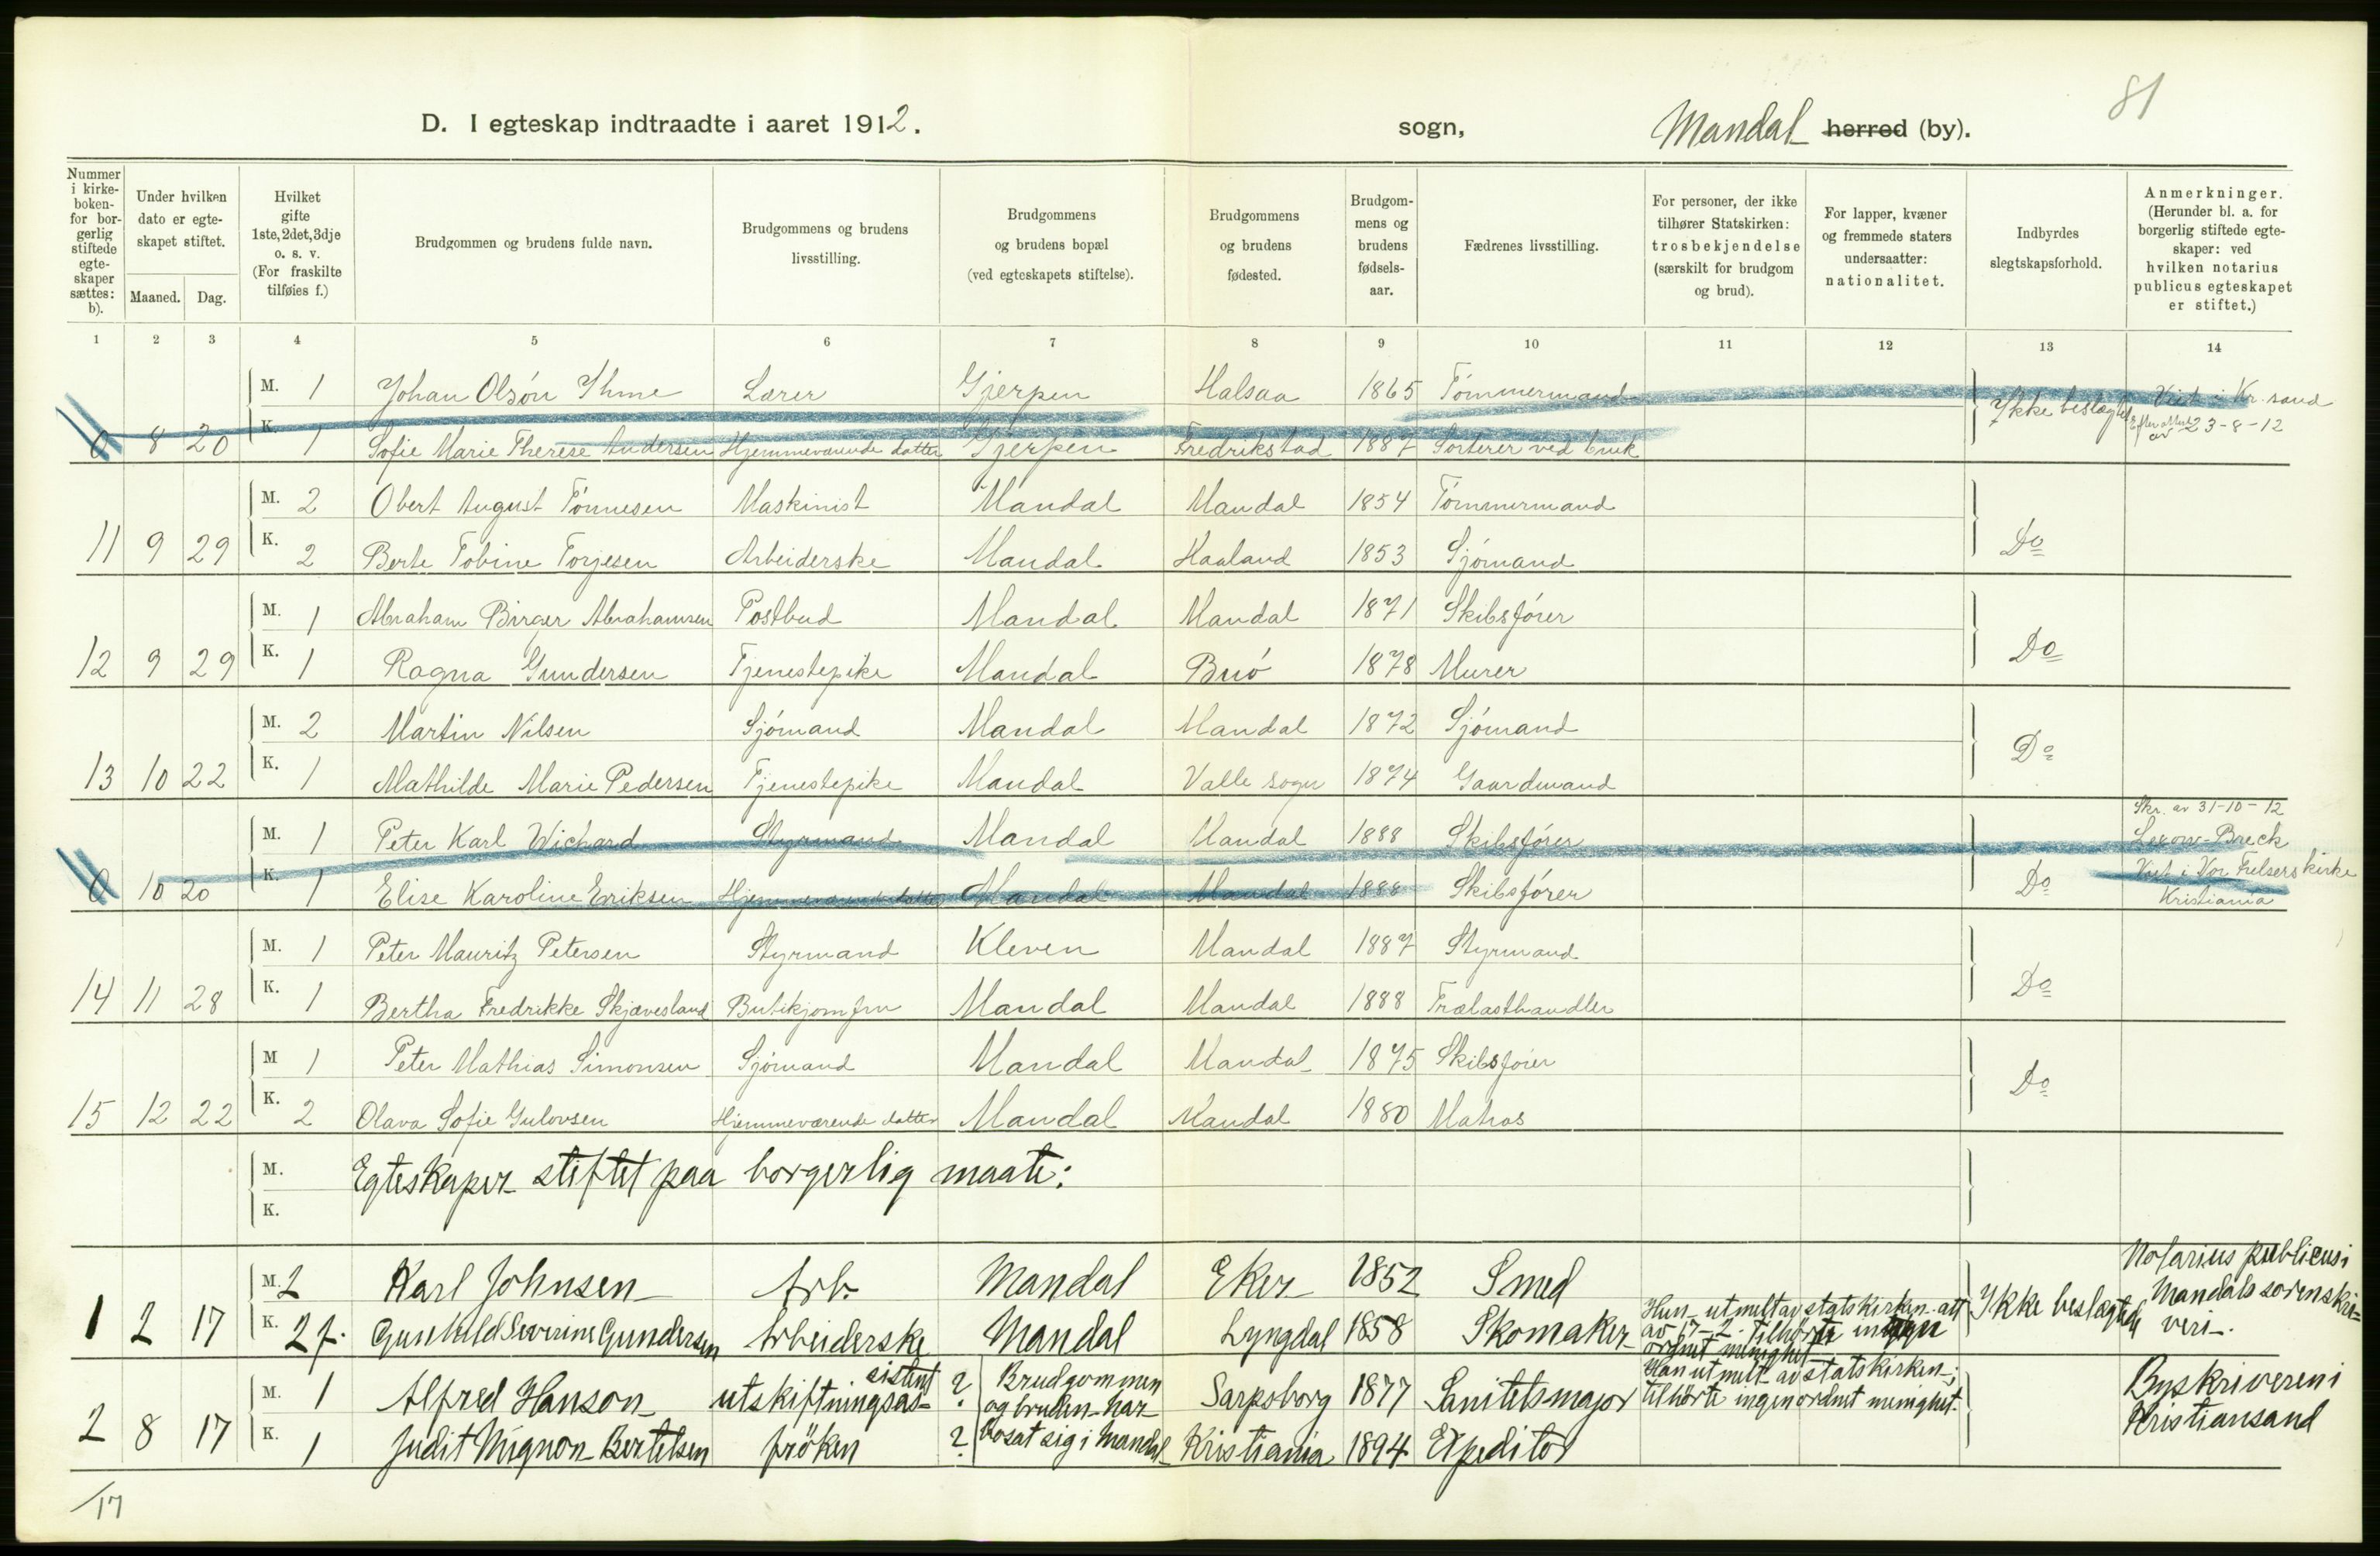 81
D. I egteskap indtraadte i aaret 1912. sogn, Mandal herred (by).
Nummer i kirkeboken for borgerlig stiftede egteskaper sættes: b).
Under hvilken dato er egteskapet stiftet.
Maaned. Dag.
Hvilket gifte 1ste, 2det, 3dje o. s. v. (For fraskilte tilføies f.)
Brudgommen og brudens fulde navn.
Brudgommens og brudens livsstilling.
Brudgommens og brudens bopæl (ved egteskapets stiftelse).
Brudgommens og brudens fødested.
Brudgommens og brudens fødselsaar.
Fædrenes livsstilling.
For personer, der ikke tilhører Statskirken: trosbekjendelse (særskilt for brudgom og brud).
For lapper, kvæner og fremmede staters undersaatter: nationalitet.
Indbyrdes slegtskapsforhold.
Anmerkninger. (Herunder bl. a. for borgerlig stiftede egteskaper: ved hvilken notarius publicus egteskapet er stiftet.)
1 2 3 4 5 6 7 8 9 10 11 12 13 14
M. 1 Johan Olsön Ihme Lærer Gjerpen Halsaa 1865 Tömmermand Ikke beslægtet Viet i Kr.sand
0 8 20 K. 1 Sofie Marie Therese Andersen Hjemmeværende datter Gjerpen Fredrikstad 1887 Sorterer ved bruk av 23-8-12
M. 2 Obert August Tönnesen Maskinist Mandal Mandal 1854 Tömmermand
11 9 29 K. 2 Berte Tobine Torjesen Arbeiderske Mandal Haaland 1853 Sjömand Do
M. 1 Abraham Birger Abrahamsen Postbud Mandal Mandal 1871 Skibsförer
12 9 29 K. 1 Ragna Gundersen Tjenestepike Mandal Buö 1878 Murer Do
M. 2 Martin Nilsen Sjömand Mandal Mandal 1872 Sjömand
13 10 22 K. 1 Mathilde Marie Pedersen Tjenestepike Mandal Valle sogn 1874 Gaardmand Do
Skr. av 31-10-12
M. 1 Peter Karl Wichard Styrmand Mandal Mandal 1888 Skibsförer Lexow-Breck
0 10 20 K. 1 Elise Karoline Eriksen Hjemmeværende datter Mandal Mandal 1888 Skibsförer Do Viet i Vor Frelsers kirke
Kristiania
M. 1 Peter Mauritz Petersen Styrmand Kleven Mandal 1887 Styrmand
14 11 28 K. 1 Bertha Fredrikke Skjævesland Butikjomfru Mandal Mandal 1888 Trælasthandler Do
M 1 Peter Mathias Simonsen Sjömand Mandal Mandal 1875 Skibsförer
15 12 22 K. 2 Olava Sofie Gulovsen Hjemmeværende datter Mandal Mandal 1880 Matros Do
M. Egteskaper stiftet paa borgerlig maate:
K.
M. 2 Karl Johnsen Arb. Mandal Eker 1852 Smed Notarius publicus i Mandals sorenskriveri.
1 2 17 K. 2 f. Gunhild Severine Gundersen Arbeiderske Mandal Lyngdal 1858 Skomaker Hun utmeldt av statskirken. att av 17-2. tilhörte ingen ordnet menighet Ikke beslægtede
M. 1 Alfred Hanson utskiftningsassistent ? Brudgommen og bruden har bosat sig i Mandal Sarpsborg 1877 Sanitetsmajor Han utmeldt av statskirken; tilhörte ingen ordnet menighet. Byskriveren i Kristiansand
2 8 17 K. 1 Judit Mignon Bertelsen fröken ? Kristiania 1894 Expeditör
/17